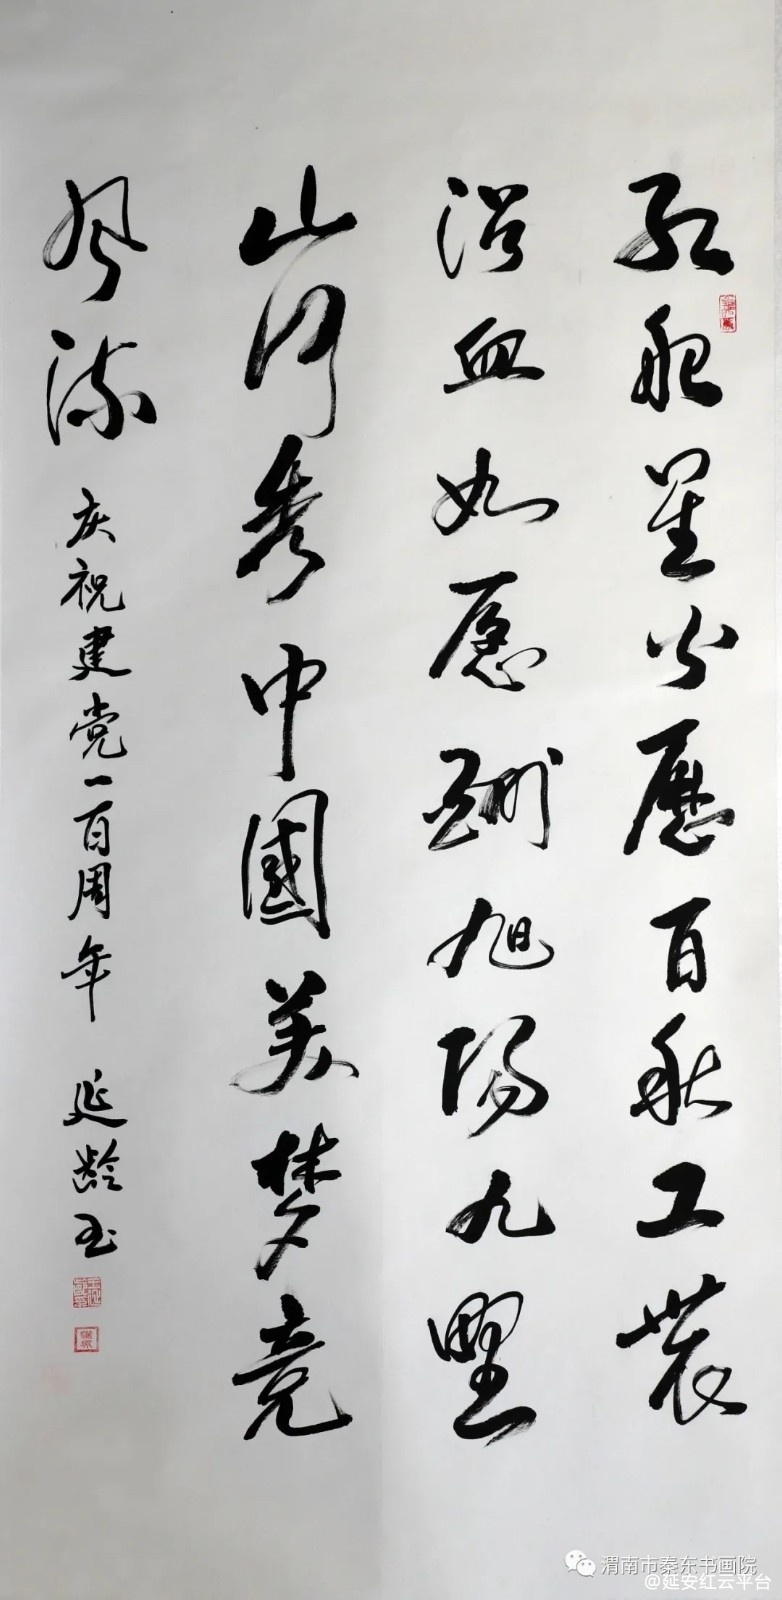 红船星火歷百秋工農
浴血如愿酬旭陽九野
山河秀中國美夢竞
风流 庆祝建党一百周年 延龄书
渭南市秦东书画院
@延安红云平台